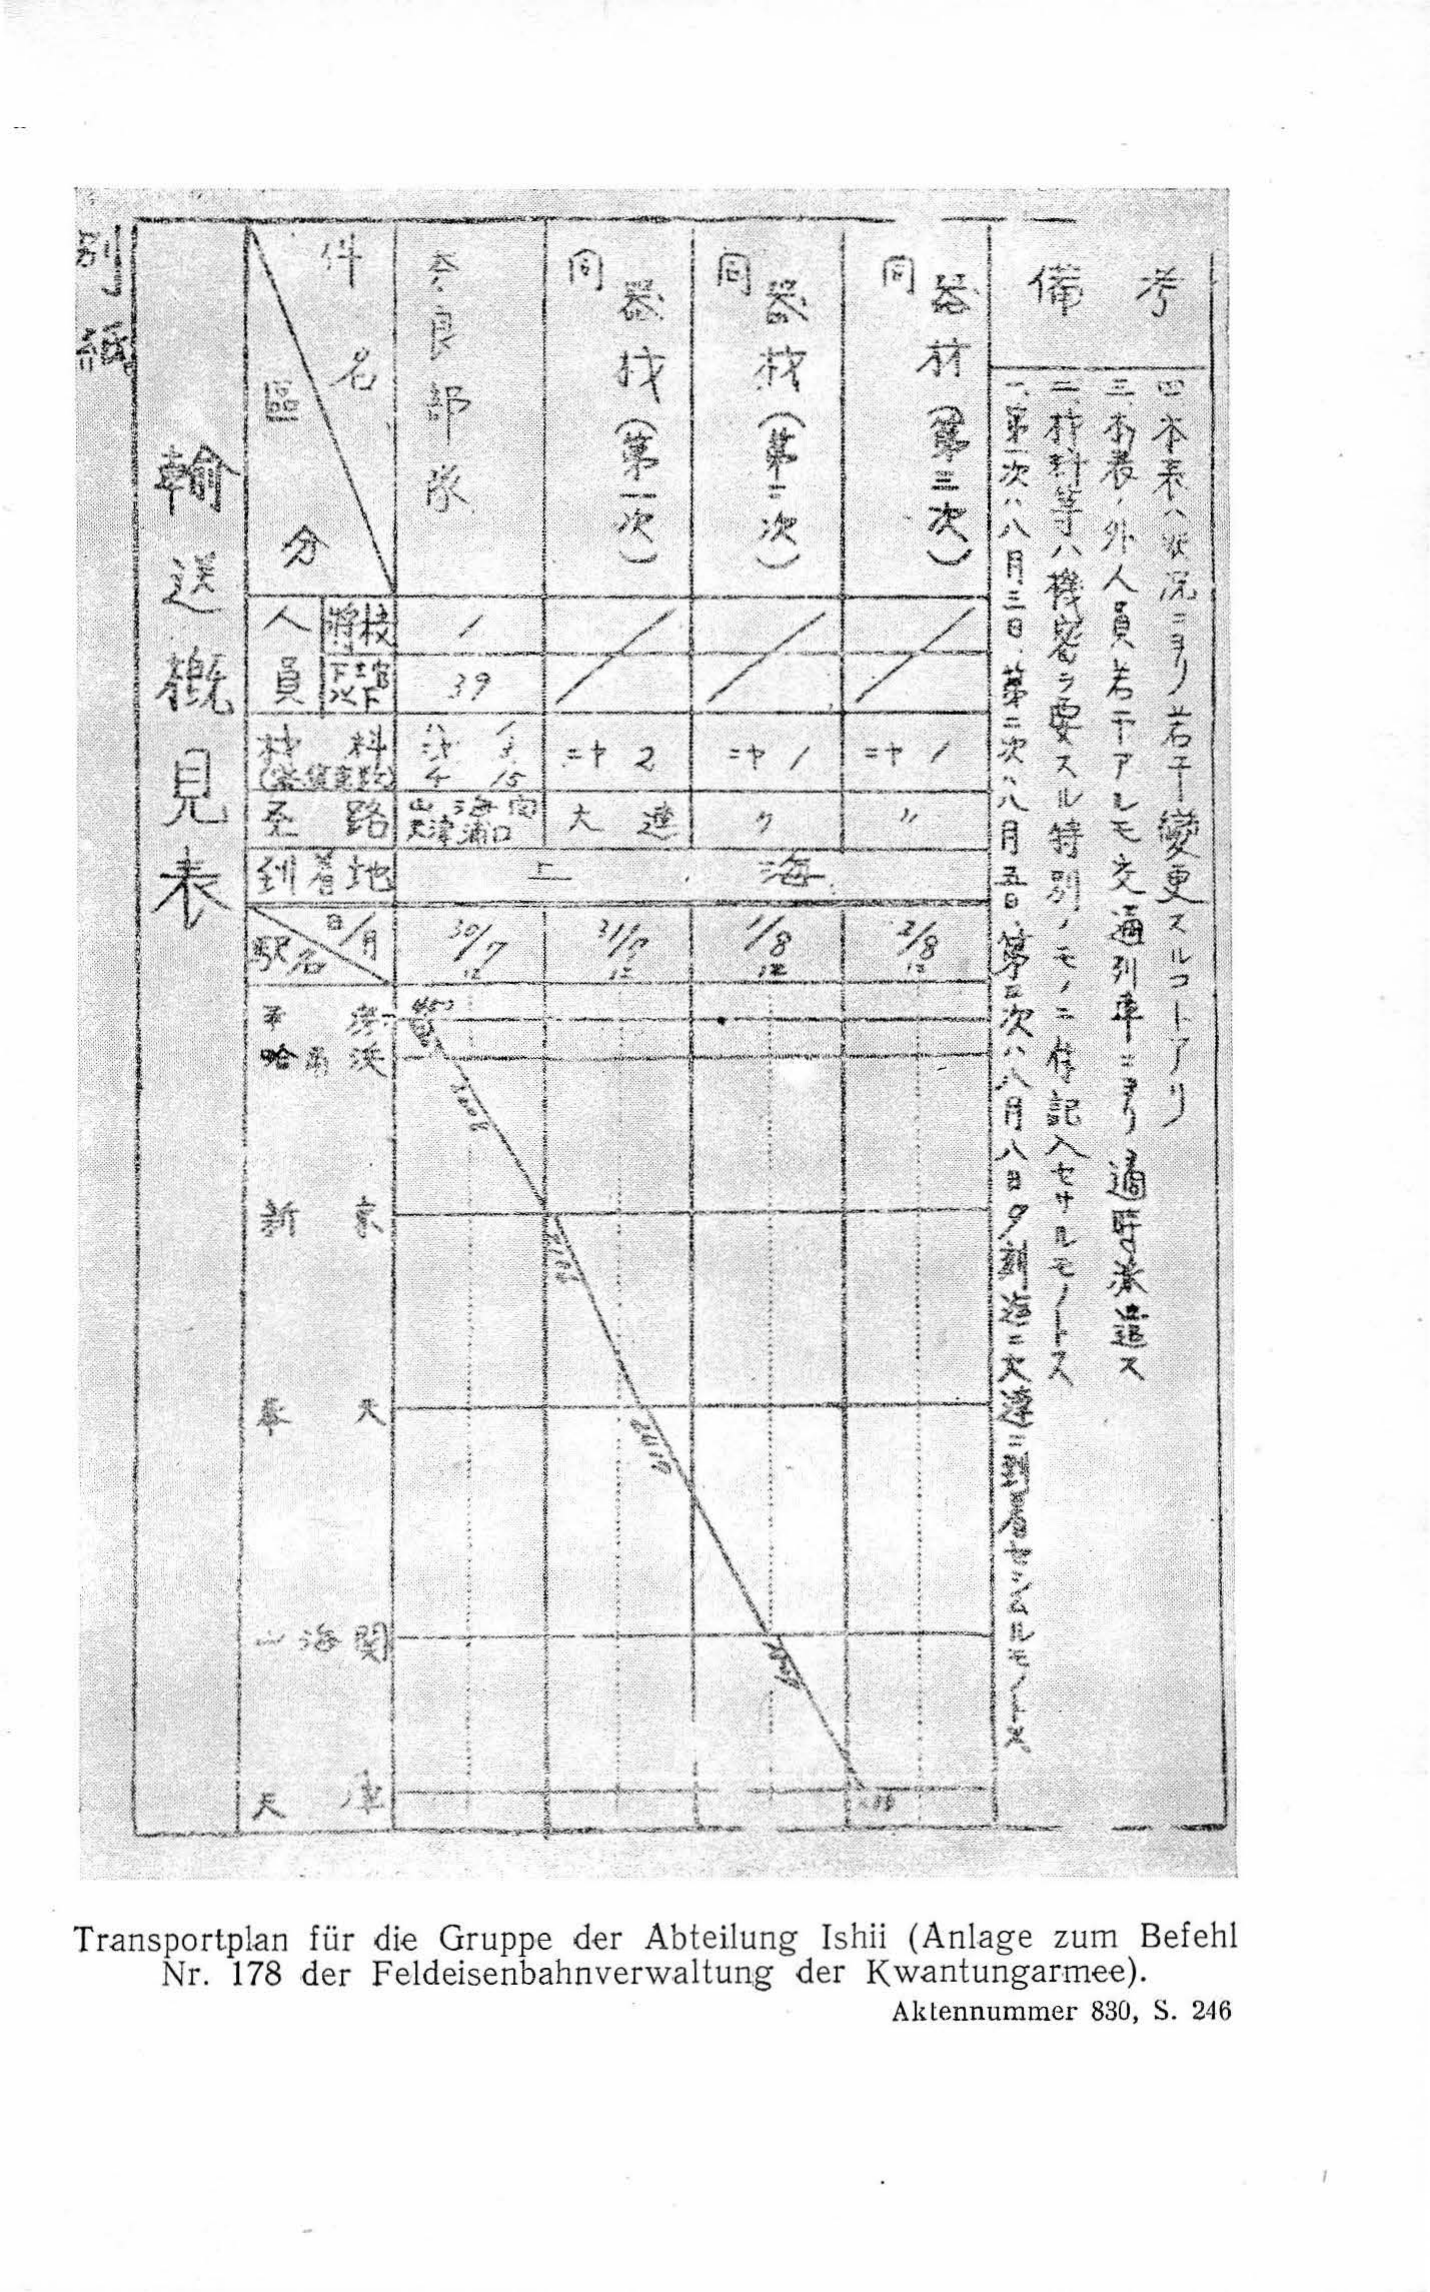 別紙
輸送概見表
件名
區分
奈良部隊
同 器材(第一次)
同 器材(第二次)
同 器材(第三次)
備考
人員
將校
1
39
材料
ニヤ 2
ニヤ 1
ニヤ 1
至路
山海関
天津浦口
大連
〃
〃
到着地
上海
日/月
駅名
30/7
31/7
1/8
2/8
12
12
12
12
平房
哈爾浜
新京
奉天
山海関
天津
一、第一次ハ八月三日、第二次ハ八月五日、第三次ハ八月八日夕
二、材料等ハ機密ヲ要スル特別ノモノニ付記入セサルモノトス
三、本表ノ外人員若干アルモ交通列車ニヨリ適時派遣ス
四、本表ハ状況ニヨリ若干変更スルコトアリ
Transportplan für die Gruppe der Abteilung Ishii (Anlage zum Befehl
Nr. 178 der Feldeisenbahnverwaltung der Kwantungarmee).
Aktennummer 830, S. 246